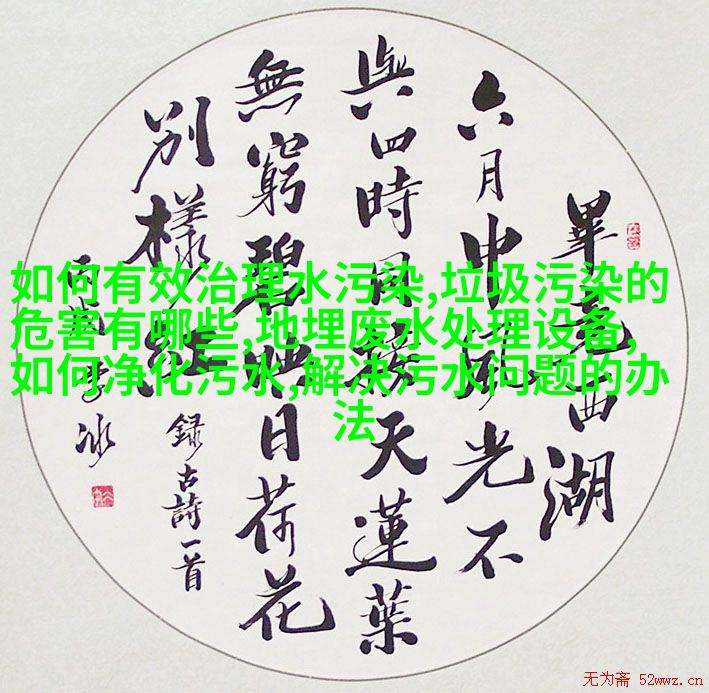 如何有效治理水污染,垃圾污染的
危害有哪些,地埋废水处理设备,
如何净化污水,解决污水问题的办
法
畢竟西湖
六月中風光不
與四時同接天蓮葉
無窮碧映日荷花
別樣紅
錄古詩一首
冰
无为斋 52wwz.cn